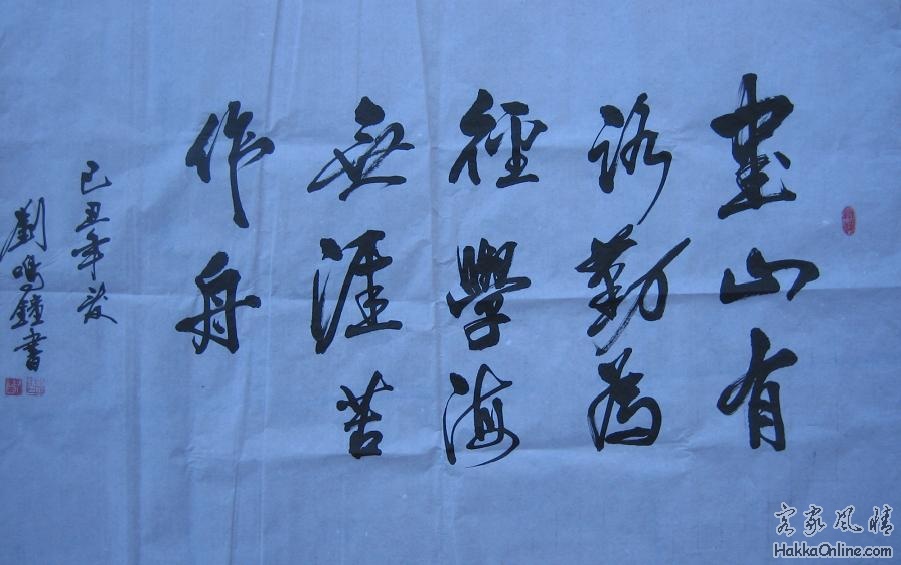 書山有
路勤為
徑學海
無涯苦
作舟
己丑年
劉鳴鐘書
客家風情
HakkaOnline.com